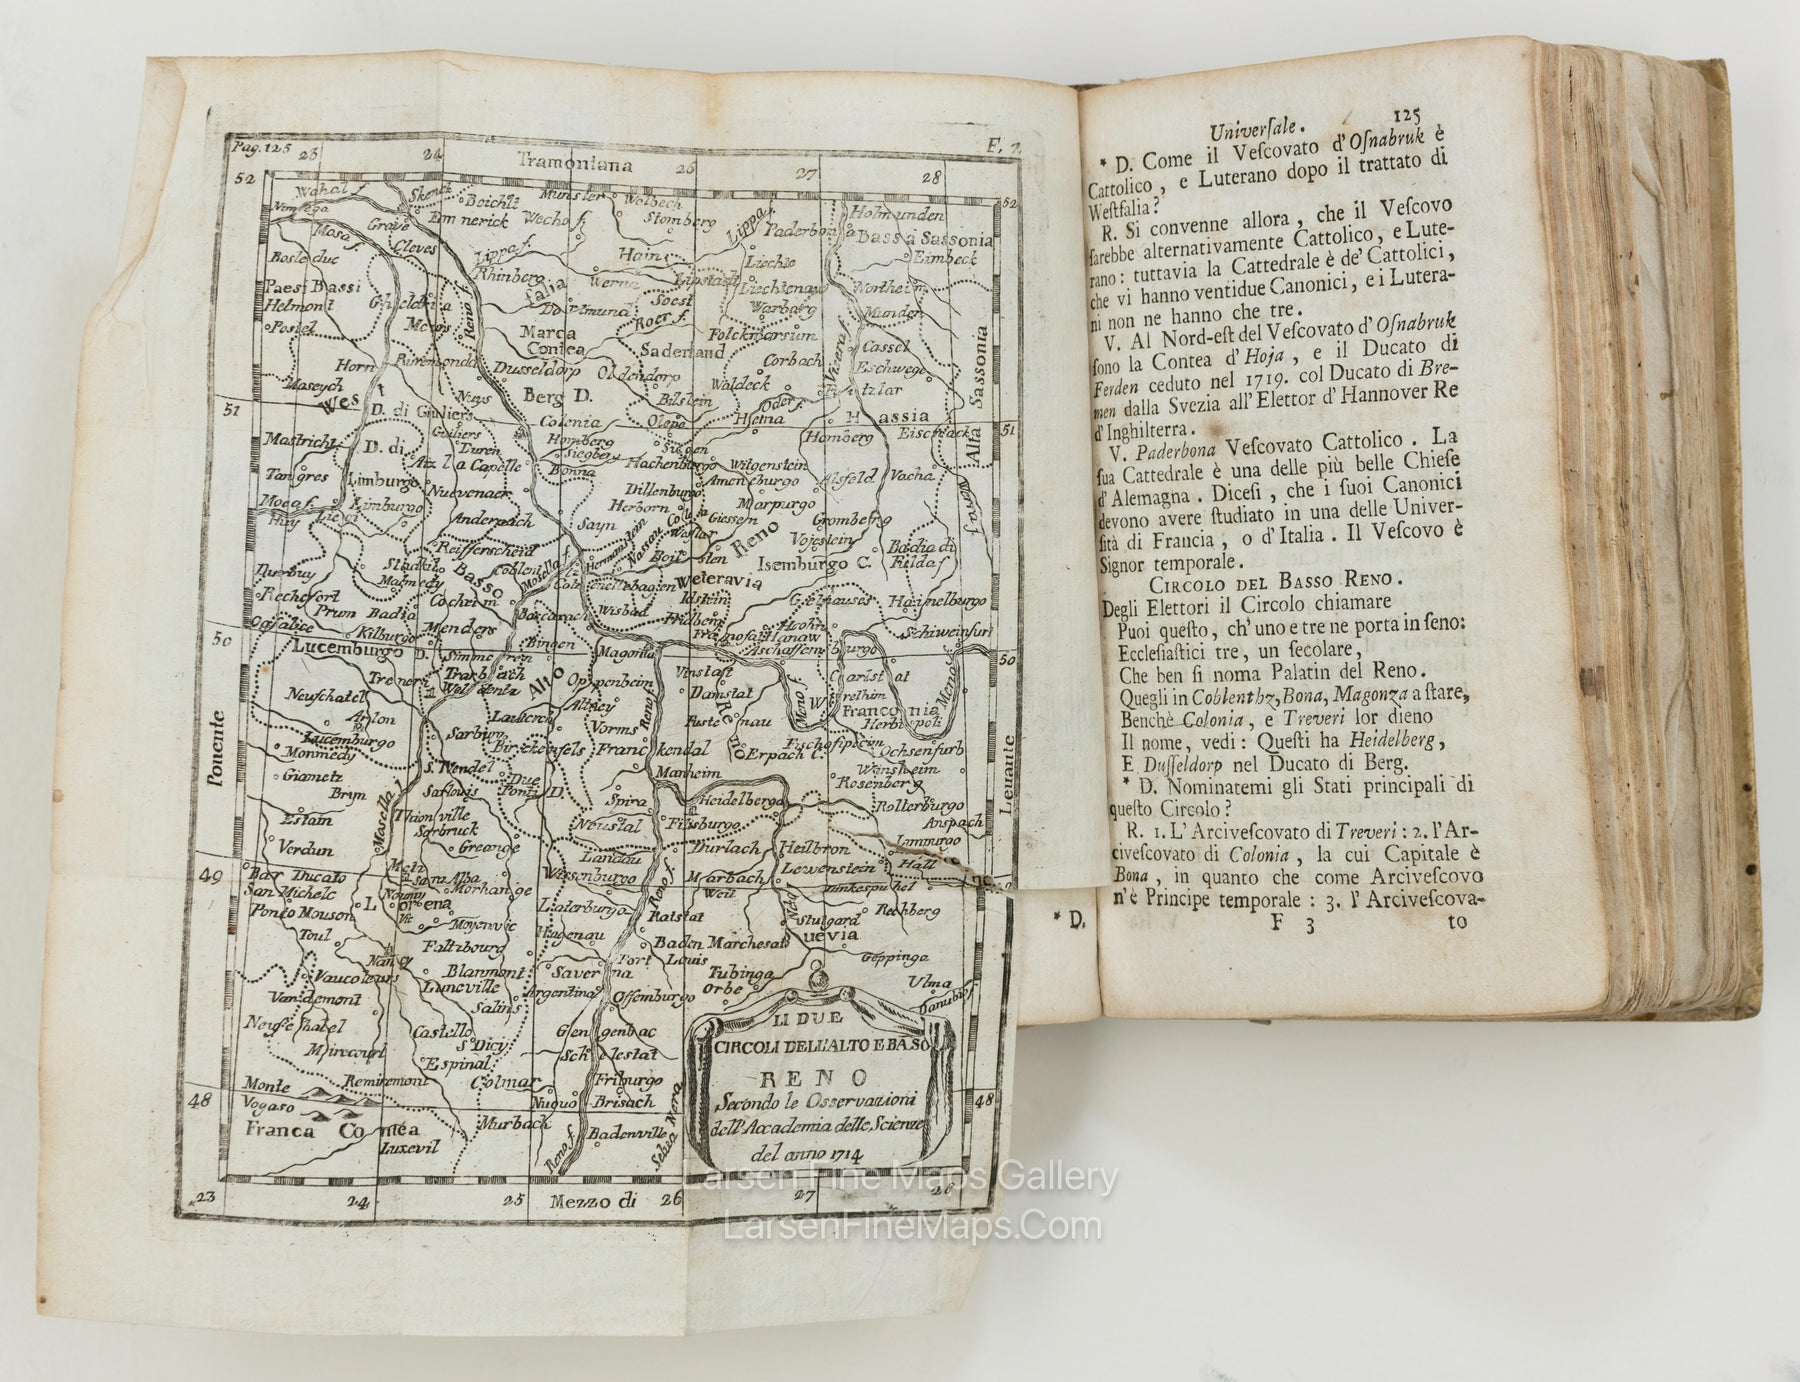 Pag. 125
23
24
Tramontana
26
27
28
52
Wahal f.
Skenck
Boichlt
Munster
Wolbech
Holmunden
52
Nimega
Grave
Emmerick
Wecha f.
Stomberg
Lippa f.
Paderbona
Bassa Sassonia
Mosa f.
Cleves
Lippa f.
Hain
Liechte
Eimbeck
Bosleduc
Rhinberg
Werna
Lipstadt
Liechtenau
Northeim
Paesi Bassi
Gheldria
Soest
Warbarg
Munden
Helmont
Dortmund
Roer f.
Postel
Meurs
Reno f.
Marca
Contea
Saderland
Folckmarsum
Cassel
Horn
Ruremonda
Dusseldorp
Oldendorp
Corbach
Eschwege
Maseych
Nuys
Berg D.
Bilstein
Waldeck
Fritzlar
Alta Sassonia
51
West
D. di Giuliers
Colonia
Olepe
Hsema
Oder f.
Hassia
51
Mastricht
D. di
Giuliers
Duren
Homberg
Siegberg
Siegen
Homberg
Eisenack
Tangres
Limburgo
Aix la Capelle
Bonna
Hachenburgo
Witgenstein
Alsfeld
Vacha
Mosa f.
Limburgo
Nuevenaer
Dillenburgo
Ameneburgo
Huy
Liegi
Andernach
Sayn
Herborn
Marpurgo
Giessen
Gromberg
Reifferscheid
Hermanstein
Nassau
Reno
Vojestein
Badia di
Fulda f.
Durbuy
Malmedy
Basso
Coblent
Mosella f.
Weteravia
Isemburgo C.
Rochefort
Prum
Badia
Cochem
Bakcarach
Wisbad
Idstein
Fridberg
Gelnauses
Hamelburgo
Kilburgo
Menders
Bingen
Magonza
Hanaw
Schweinfurt
50
Lucemburgo D.
Simmeren
Aschaffemburgo
50
Treveri
Trarbach
Alto
Oppenheim
Vinstast
Carlstat
Neuschatel
Damstat
Meno f.
Arlon
Altzey
Franconia
Lucemburgo
Sarbigo
Birckenfels
Vorms
Reno f.
Herbipoli
Monmedy
Franckendal
Erpach C.
Ochsenfurb
Giametz
S. Wendel
Due
Ponti D.
Manheim
Winsheim
Brun
Sarlouis
Spira
Heidelberga
Rosenberg
Rotterburgo
Estain
Mosella f.
Thionville
Sarbruck
Neustat
Filisburgo
Anspach
Ponente
Leuante
Verdun
Greange
Landau
Durlach
Heilbron
Limpurgo
49
Bar Ducato
Metz
Wissenburgo
Marbach
Lewenstein
Hall
San Michele
Morhange
Weil
Dinkespuhel
Ponto Mouson
Lorena
Reno f.
Ratstat
Rechberg
Vic
Moyenvic
Stutgard
Toul
Faltzbourg
Hagenau
Baden Marchesat
Suevia
Nancy
Fort
Louis
Geppinge
Vaucoleurs
Blanmont
Saverna
Tubinga
Ulma
Vandemont
Luneville
Argentina
Offemburgo
Orbe
Danubio f.
Salins
Neufchatel
Castello
Gengenbac
Mirecourt
S. Dicy
Schlestat
Espinal
Monte
Vogaso
Remiremont
Colmar
Friburgo
48
Nuovo Brisach
48
Franca Contea
Murbach
Badenville
Luxevil
Reno f.
Selva Nera
LI DUE
CIRCOLI DELL'ALTO E BASO
RENO
Secondo le Osservationi
dell'Accademia delle Scienze
del anno 1714
23
24
25
Mezzo di
26
27
28
Larsen Fine Maps Gallery
LarsenFineMaps.Com
Universale. 125
* D. Come il Vescovato d'Osnabruk è
Cattolico, e Luterano dopo il trattato di
Westfalia?
R. Si convenne allora, che il Vescovo
sarebbe alternativamente Cattolico, e Lute-
rano: tuttavia la Cattedrale è de' Cattolici,
che vi hanno ventidue Canonici, e i Lutera-
ni non ne hanno che tre.
V. Al Nord-est del Vescovato d'Osnabruk
sono la Contea d'Hoja, e il Ducato di
Ferden ceduto nel 1719. col Ducato di Bre-
men dalla Svezia all'Elettor d'Hannover Re
d'Inghilterra.
V. Paderbona Vescovato Cattolico. La
sua Cattedrale è una delle più belle Chiese
d'Alemagna. Dicesi, che i suoi Canonici
devono avere studiato in una delle Univer-
sità di Francia, o d'Italia. Il Vescovo è
Signor temporale.
CIRCOLO DEL BASSO RENO.
Degli Elettori il Circolo chiamare
Puoi questo, ch'uno e tre ne porta in seno:
Ecclesiastici tre, un secolare,
Che ben si noma Palatin del Reno.
Quegli in Coblenthz, Bona, Magonza a stare,
Benchè Colonia, e Treveri lor dieno
Il nome, vedi: Questi ha Heidelberg,
E Dusseldorp nel Ducato di Berg.
* D. Nominatemi gli Stati principali di
questo Circolo?
R. 1. L'Arcivescovato di Treveri: 2. l'Ar-
civescovato di Colonia, la cui Capitale è
Bona, in quanto che come Arcivescovo
n'è Principe temporale: 3. l'Arcivescova-
* D.
F 3
to